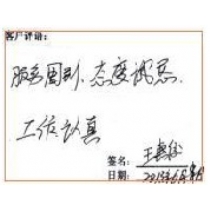 客户评语：
服务周到、态度诚恳.
工作认真
签名：王
日期：2013年6月